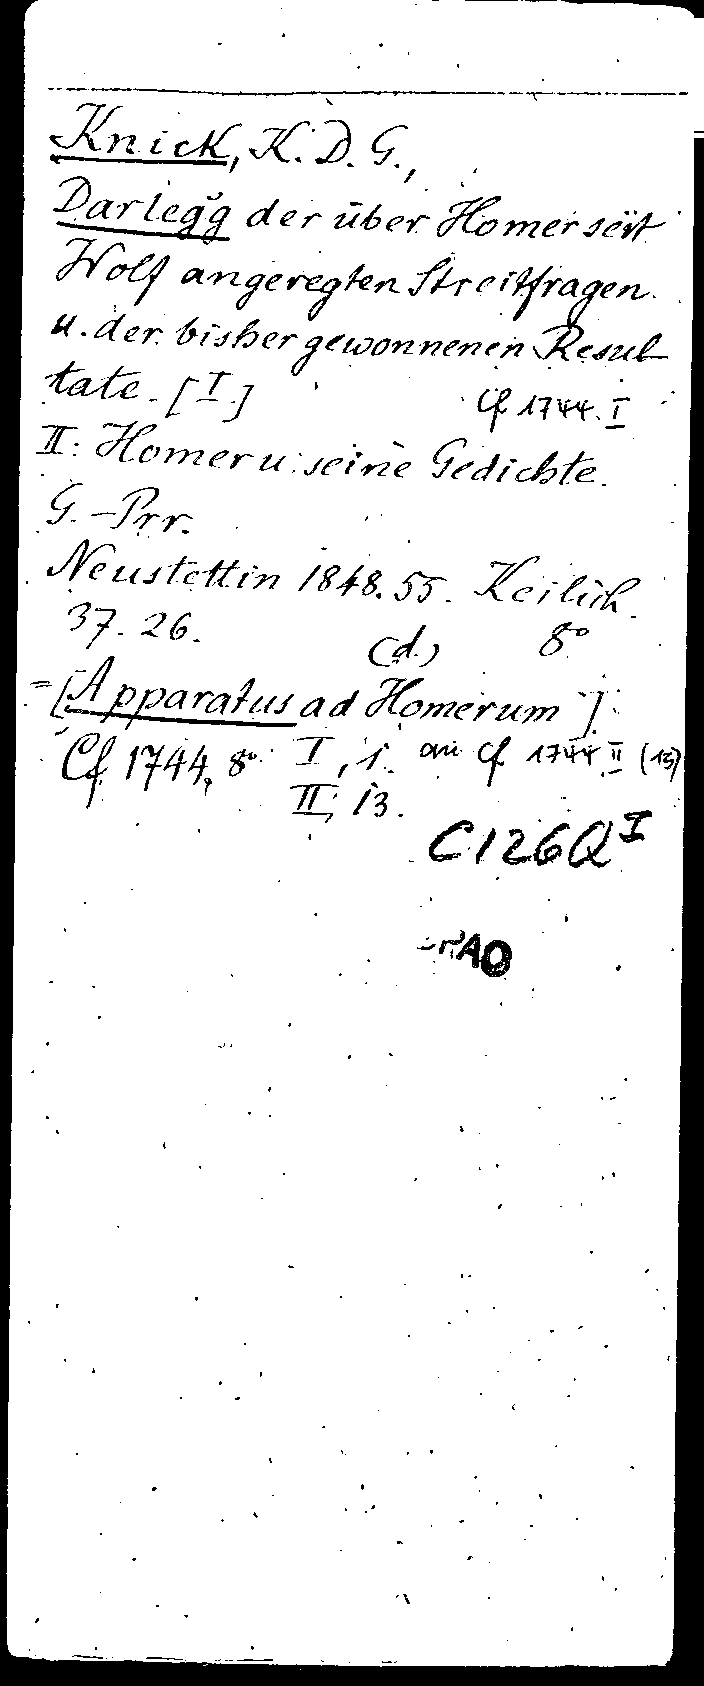 Knick, K. D. G.,
Darlegg der über Homer seit
Wolf angeregten Streitfragen
u. der bisher gewonnenen Resul-
tate. [I.]
Cf 1744. I
II: Homer u. seine Gedichte.
G.-Prr.
Neustettin 1848. 55. Keilich.
37. 26.
(d.) 8°
=[Apparatus ad Homerum]
Cf 1744, 8° I, 1. an Cf 1744 II (13)
II, 13.
C126Q I